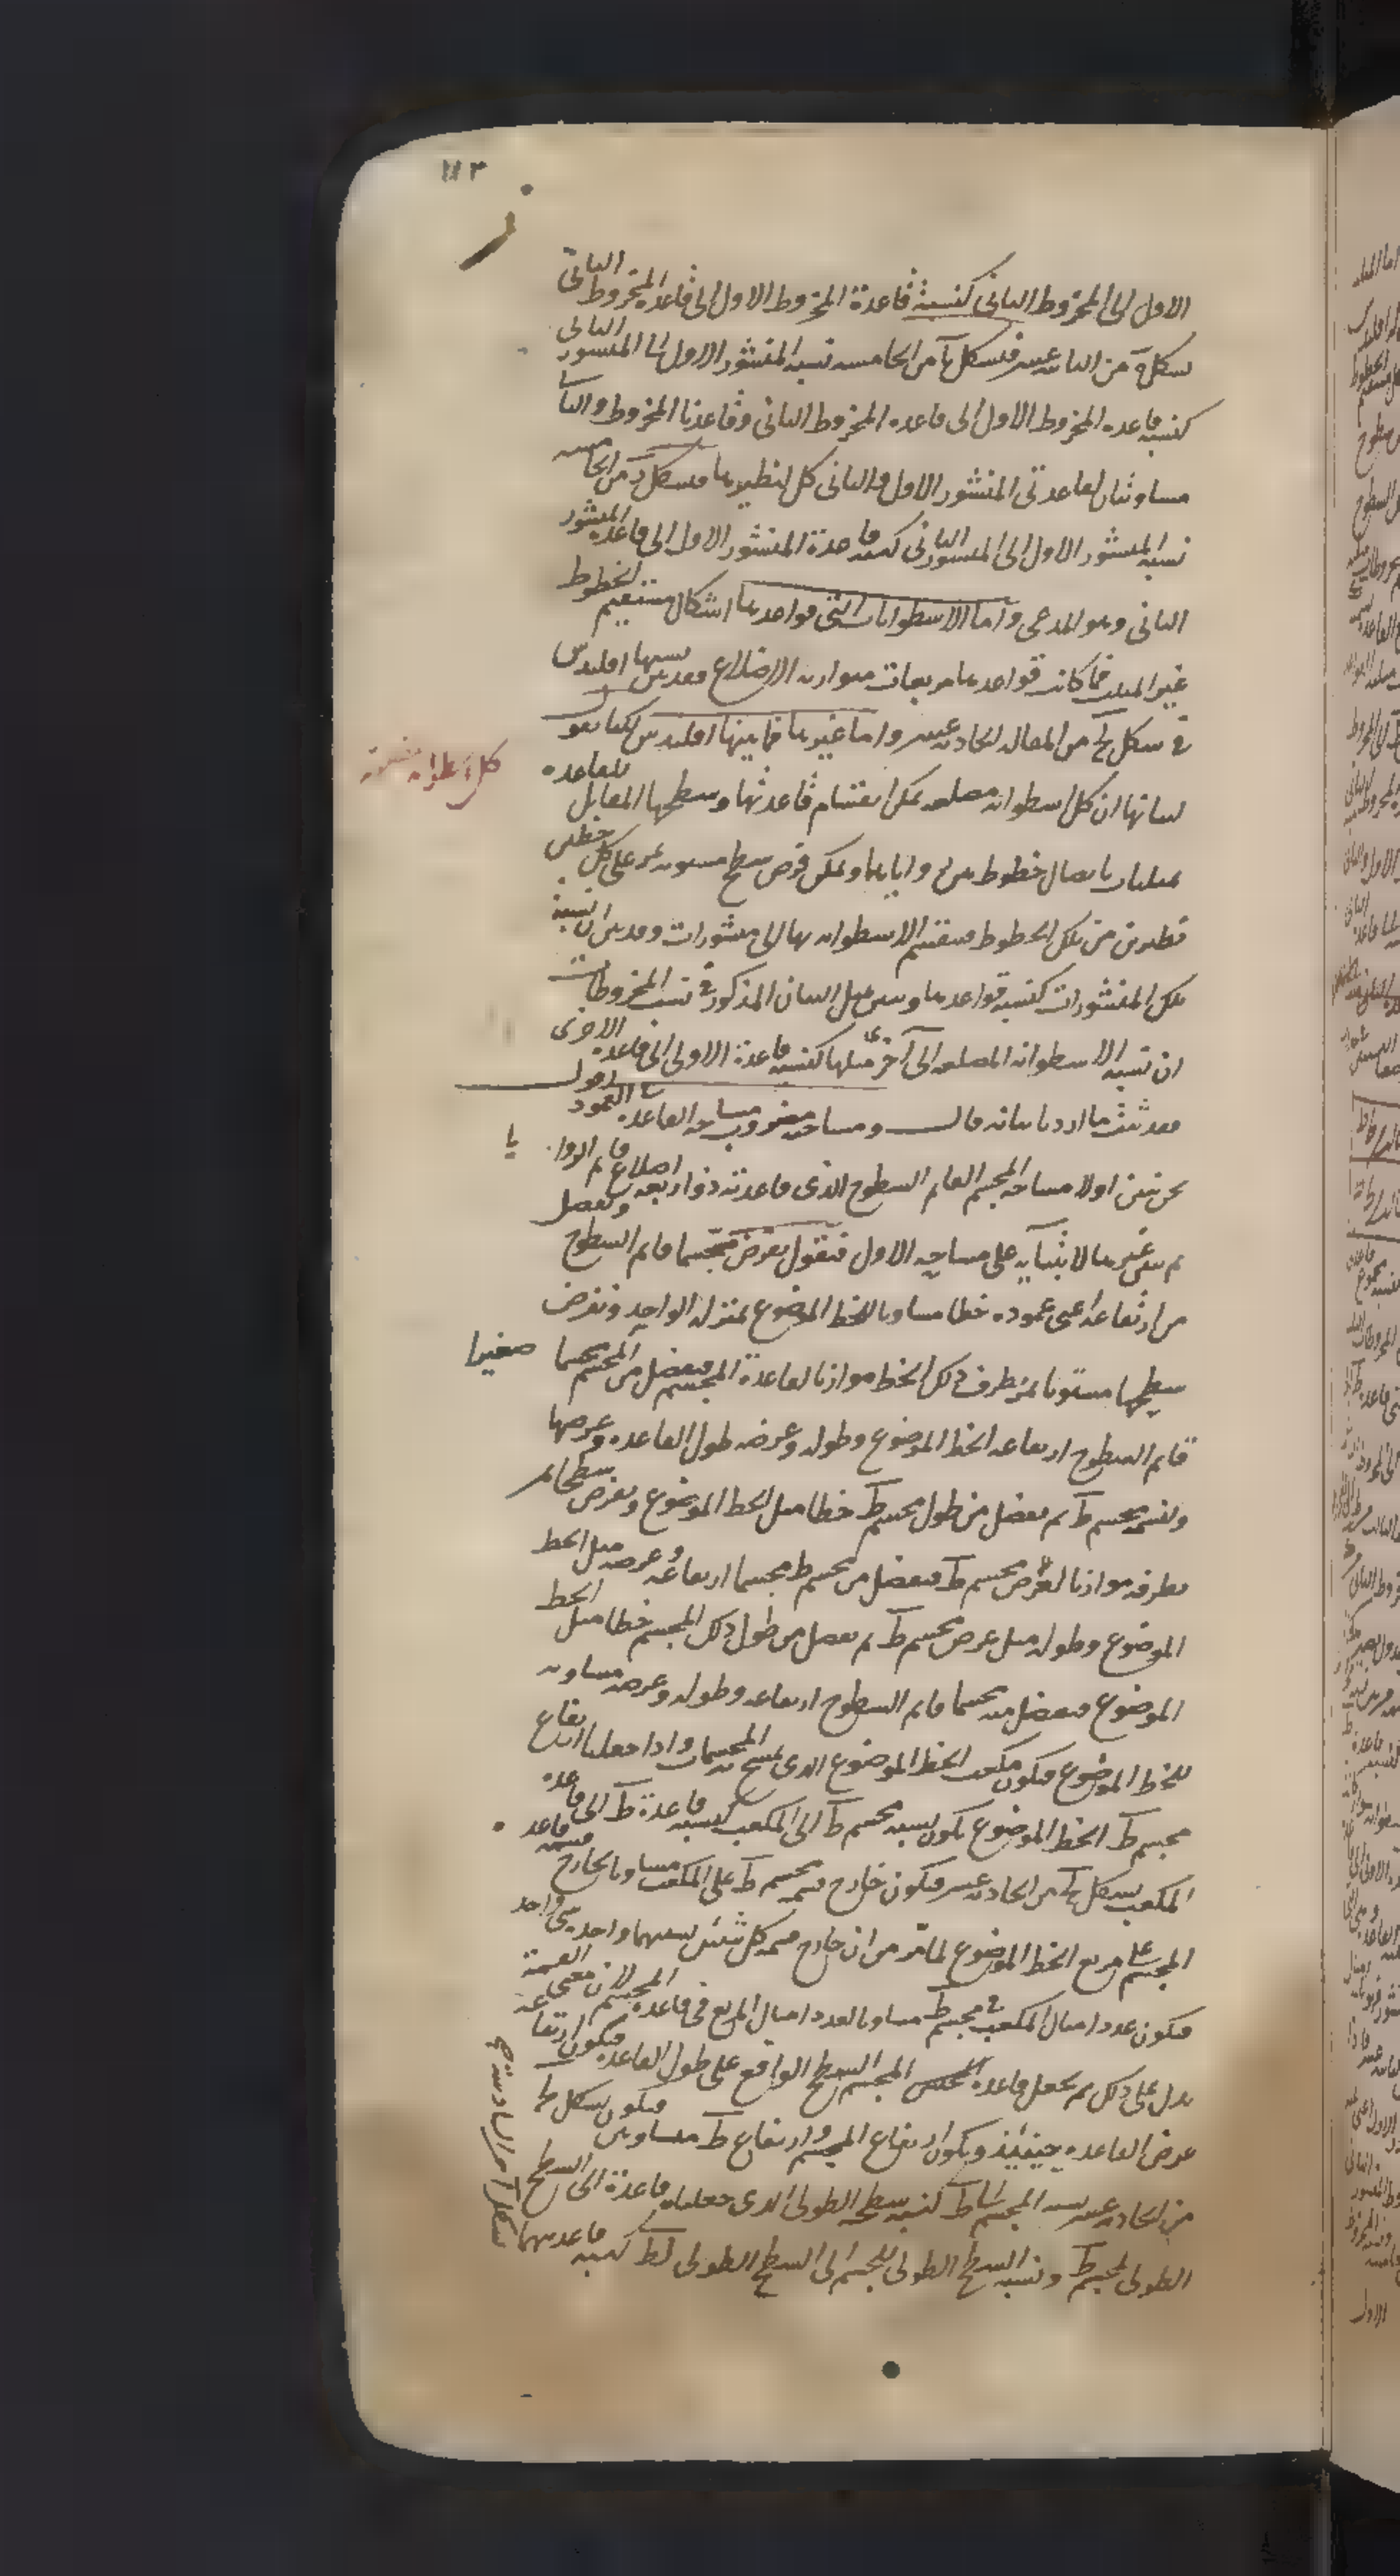 ١١٣
الاول الى المخروط الثانى كنسبة قاعدة المخروط الاول الى قاعدة المخروط الثانى
شكل من الثانية عشر فبشكل من الخامسة نسبة المنشور الاول الى المنشور الثانى
كنسبة قاعدة المخروط الاول الى قاعدة المخروط الثانى وقاعدتا المخروط
مساويتان لقاعدتى المنشور الاول والثانى كل لنظيرها فبشكل من الخامسة
نسبة المنشور الاول الى المنشور الثانى كنسبة قاعدة المنشور الاول الى قاعدة المنشور
الثانى وهو المدعى واما الاسطوانات التى قواعدها اشكال مستقيم الخطوط
غير المثلث فما كانت قواعدها مربعات متوازية الاضلاع فقد بين نسبها اقليدس
فى شكل من المقالة الحادية عشر واما غيرها فما بينها اقليدس لكنا نقول
لبيانها ان كل اسطوانة مضلعة يمكن انقسام قاعدتها وسطحها المقابل للقاعدة
بمثلثات باتصال خطوط بين زواياها ويمكن فرض سطح مستو يمر على كل خطين
نظيرين من تلك الخطوط فينقسم الاسطوانة بها الى منشورات وقد بين ان نسبة
تلك المنشورات كنسبة قواعدها وتبين بمثل البيان المذكور فى نسب المخروطات
ان نسبة الاسطوانة المضلعة الى اخرى مثلها كنسبة قاعدة الاولى الى قاعدة الاخرى
فقد ثبت ما اردنا بيانه قال ومساحته مضروب مساحة القاعدة فى العمود
نحن نبين اولا مساحة المجسم القائم السطوح الذى قاعدته ذو اربعة اضلاع قائم الزوايا
ثم نبين غيرها لابتنائه على مساحة الاول فنقول نفرض مجسما قائم السطوح ونفصل
من ارتفاعه اعنى عموده خطا مساويا للخط الموضوع بمنزلة الواحد ونفرض
سطحا مستويا يمر بطرف ذلك الخط موازيا لقاعدة المجسم فيفصل من المجسم مجسما صغيرا
قائم السطوح ارتفاعه الخط الموضوع وطوله وعرضه طول القاعدة وعرضها
ونسميه مجسم ط ثم نفصل من طول مجسم ط خطا مثل الخط الموضوع ونفرض سطحا يمر
بطرفه موازيا لعرض مجسم ط فيفصل من مجسم ط مجسما ارتفاعه وعرضه مثل الخط
الموضوع وطوله مثل عرض مجسم ط ثم نفصل من طول ذلك المجسم خطا مثل الخط
الموضوع فيفصل منه مجسما قائم السطوح ارتفاعه وطوله وعرضه مساوية
للخط الموضوع فيكون مكعب الخط الموضوع الذى تمسح به المجسمات واذا جعلنا ارتفاع
مجسم ط الخط الموضوع يكون نسبة مجسم ط الى المكعب كنسبة قاعدة ط الى قاعدة
المكعب بشكل من الحادية عشر فيكون خارج قسمة مجسم ط على المكعب مساويا لخارج قسمة قاعدة
المجسم على مربع الخط الموضوع لما مر من ان خارج قسمة كل شيئين نسبتهما واحدة شئ واحد
فيكون عدد امثال المكعب فى مجسم ط مساويا لعدد امثال المربع فى قاعدة المجسم لان معنى القسمة
يدل على ذلك ثم نجعل قاعدة المجسم السطح الواقع على طول القاعدة فيكون ارتفاعه
عرض القاعدة حينئذ ويكون ارتفاع المجسم وارتفاع ط متساويين فيكون بشكل
من الحادية عشر نسبة المجسم الى ط كنسبة سطحه الطولى الذى جعلناه قاعدة الى السطح
الطولى لمجسم ط ونسبة السطح الطولى للمجسم الى السطح الطولى لط كنسبة قاعدتيهما
كل اسطوانة
يا